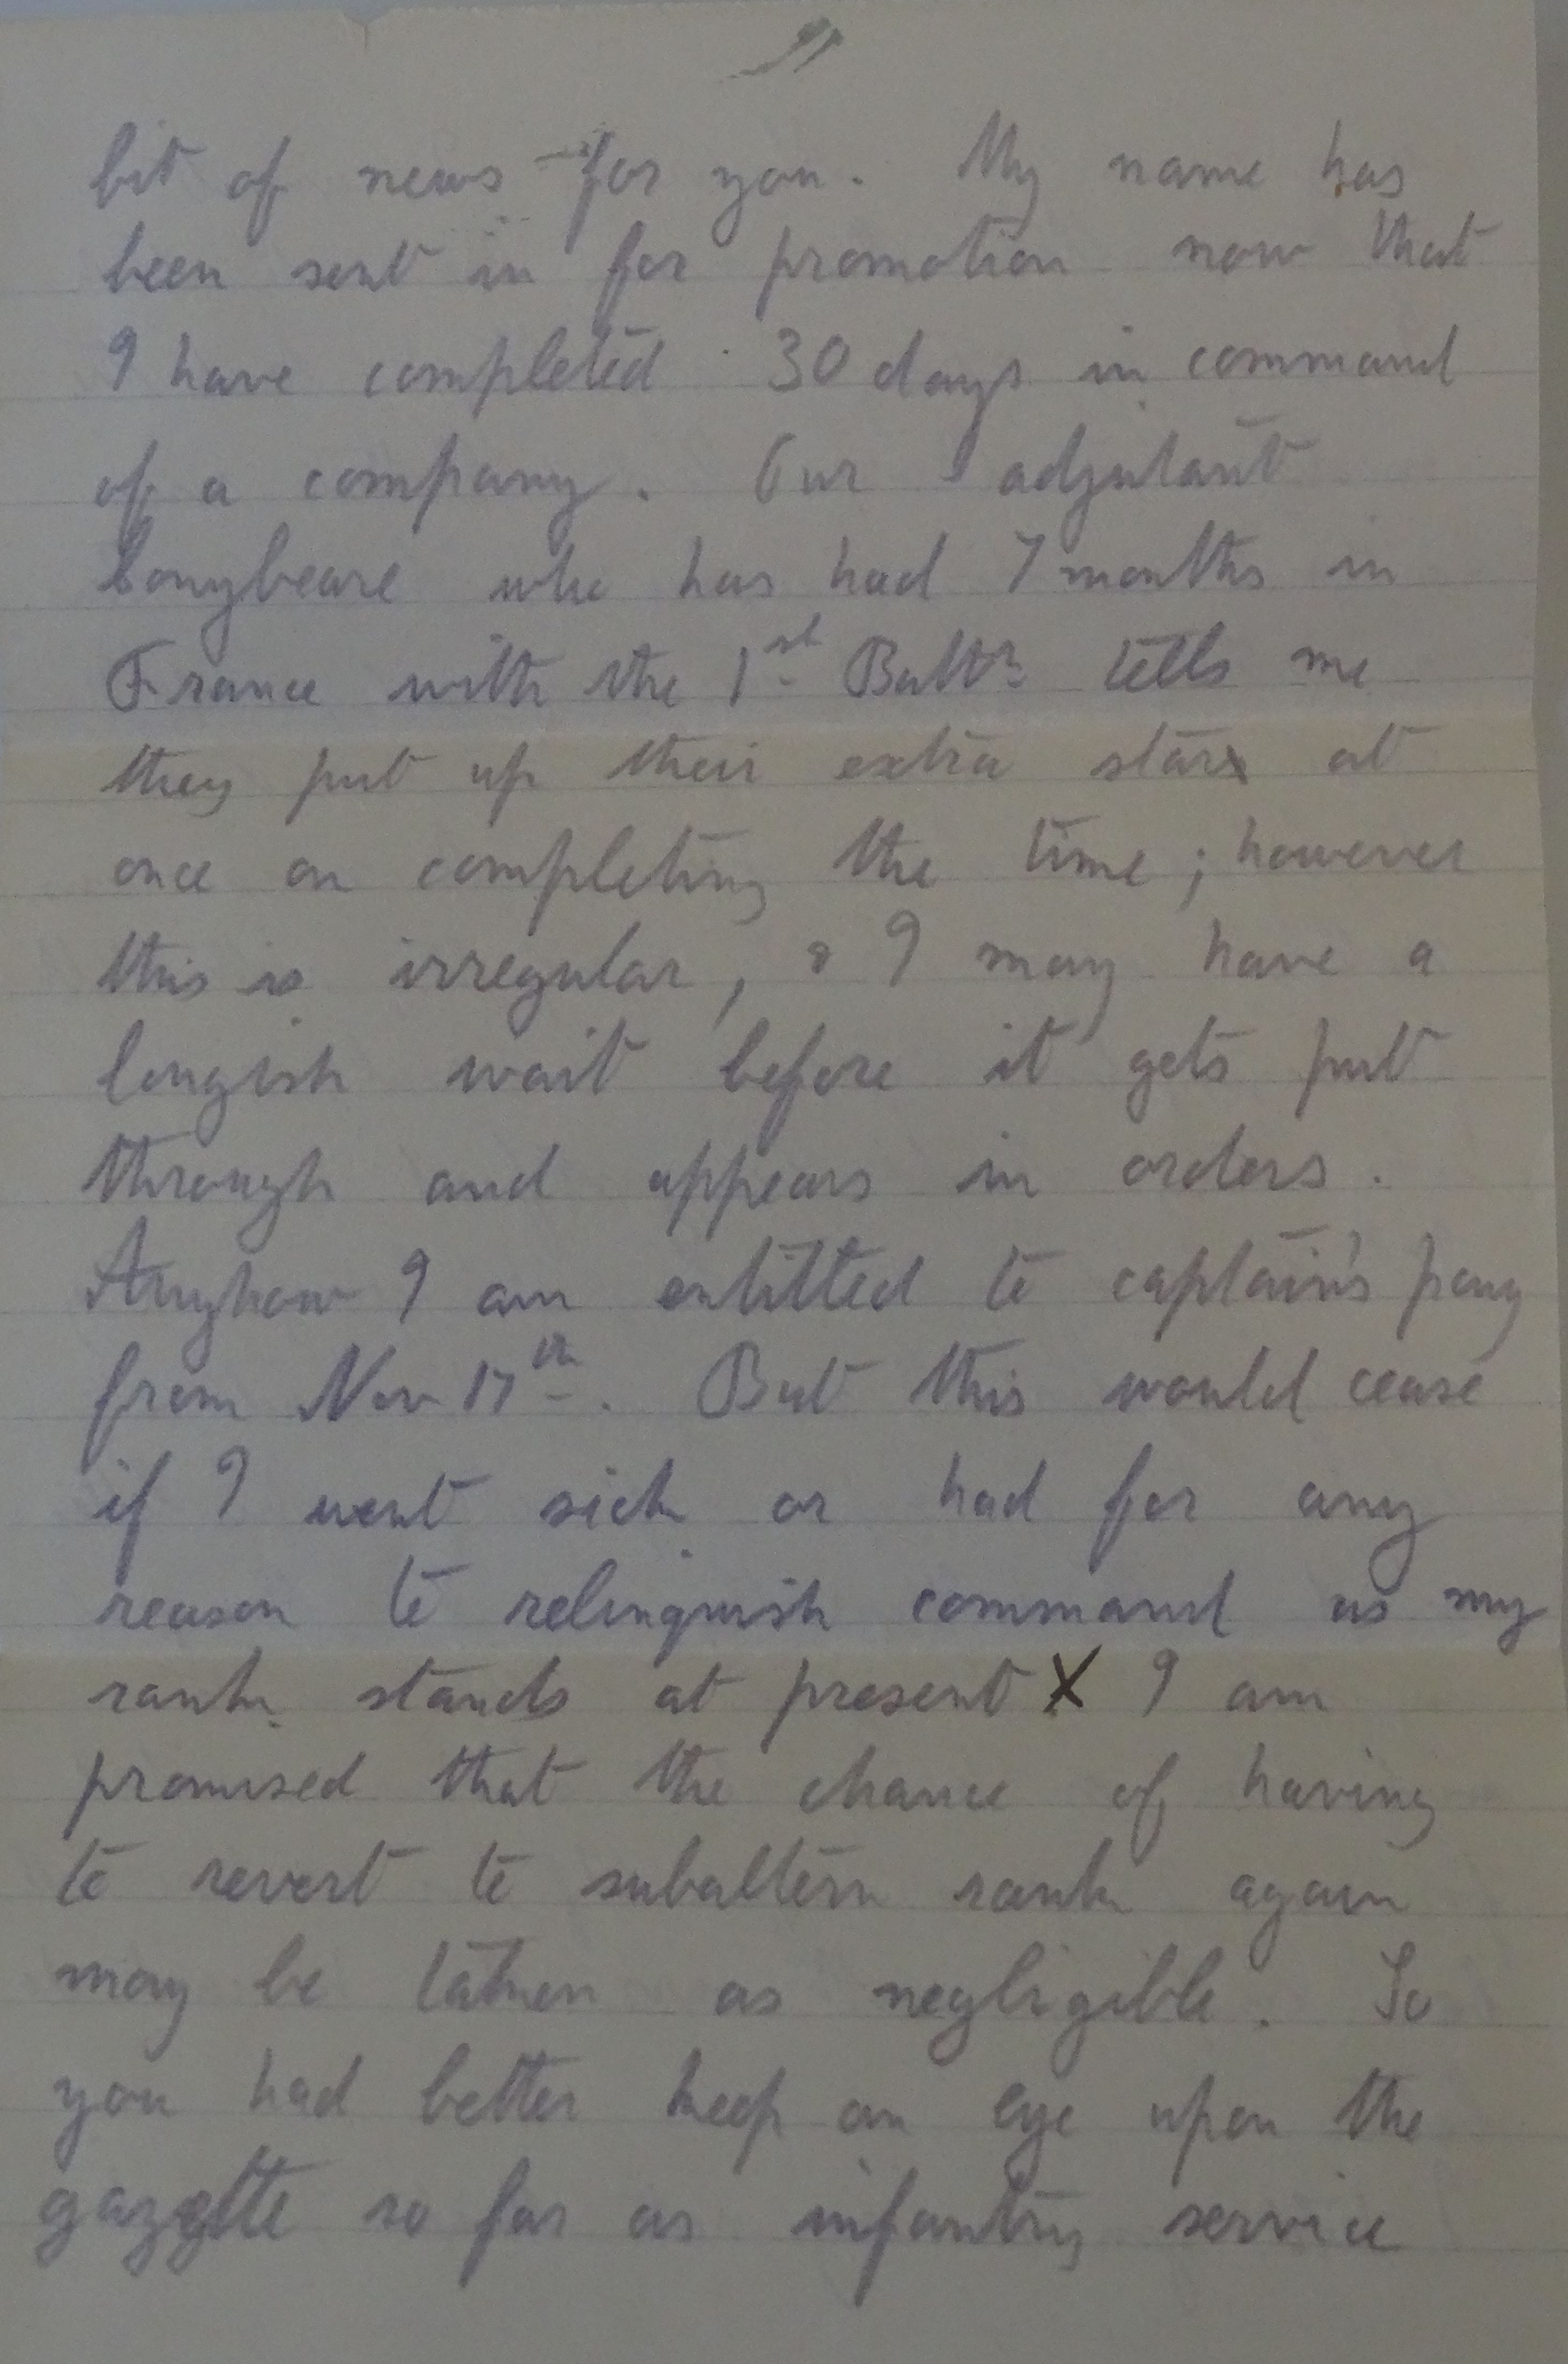 bit of news for you. My name has
been sent in for promotion now that
I have completed 30 days in command
of a company. Our adjutant
Conybeare who has had 7 months in
France with the 1st Battn tells me
they put up their extra star at
once on completing the time; however
this is irregular, & I may have a
longish wait before it gets put
through and appears in orders.
Anyhow I am entitled to captain's pay
from Nov 17th. But this would cease
if I went sick or had for any
reason to relinquish command as my
rank stands at present X I am
promised that the chance of having
to revert to subaltern rank again
may be taken as negligible. So
you had better keep an eye upon the
gazette so far as infantry service